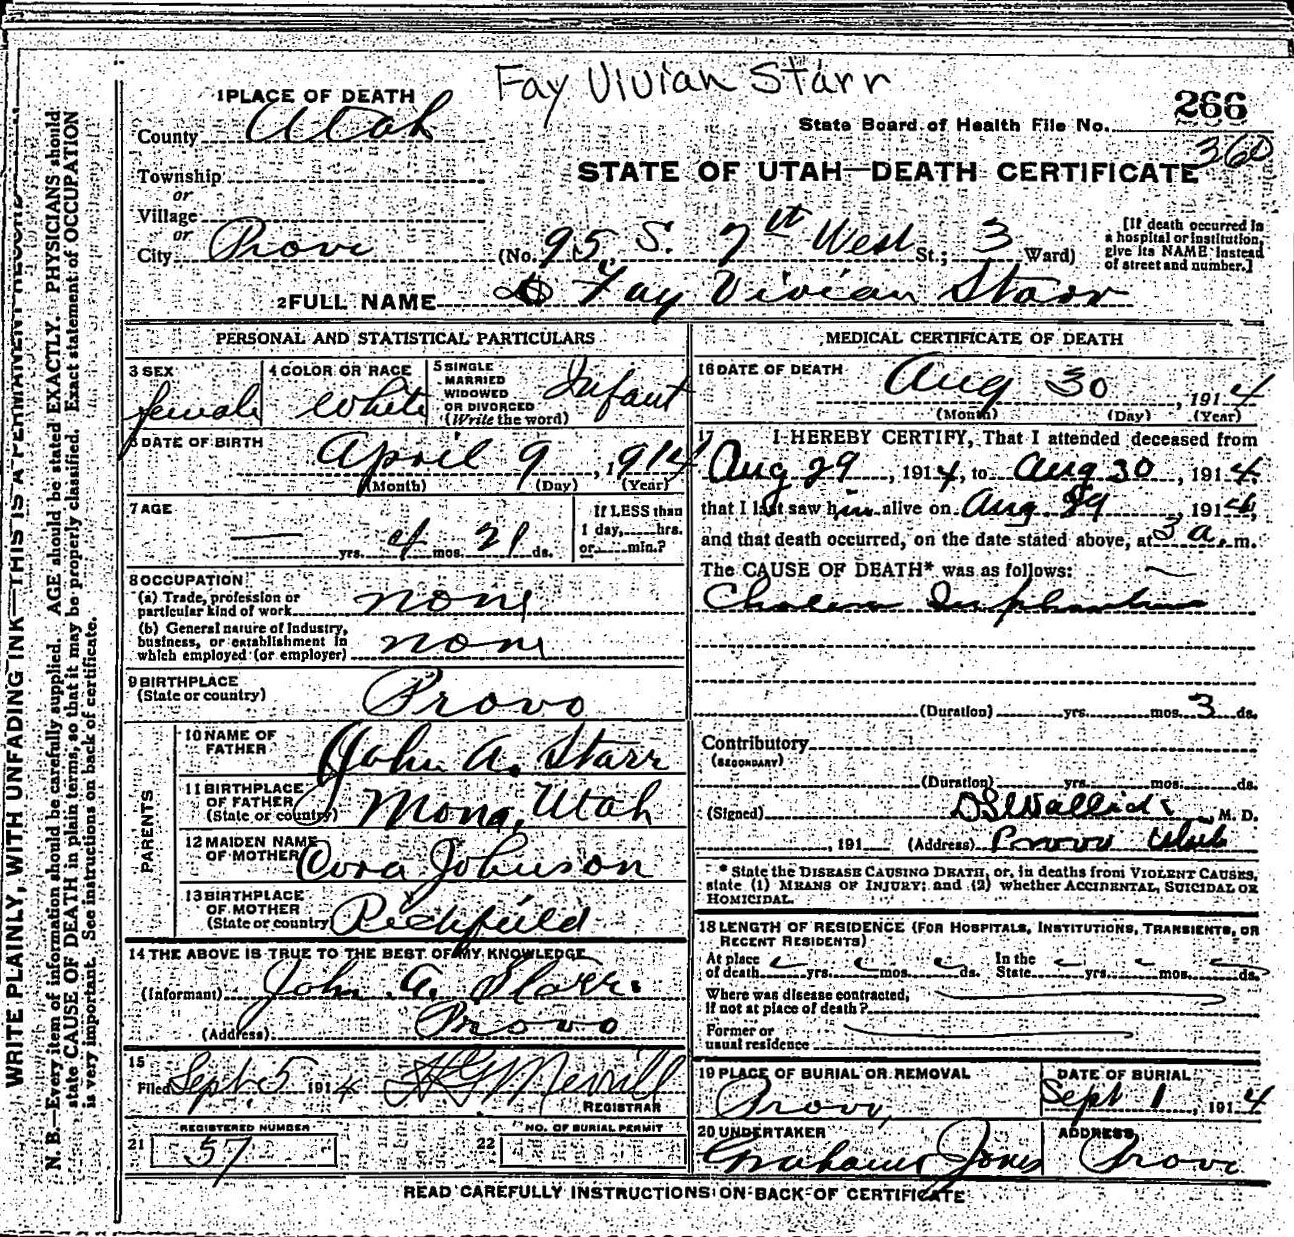 Fay Vivian Starr
1 PLACE OF DEATH
266
County Utah
State Board of Health File No.
360
Township
STATE OF UTAH—DEATH CERTIFICATE
or
Village
or
City Provo (No. 95 S. 7th West St.; 3 Ward)
[If death occurred in a hospital or institution, give its NAME instead of street and number.]
2 FULL NAME Fay Vivian Starr
PERSONAL AND STATISTICAL PARTICULARS
3 SEX female
4 COLOR OR RACE White
5 SINGLE MARRIED WIDOWED OR DIVORCED (Write the word) Infant
DATE OF BIRTH April 9, 1914
(Month) (Day) (Year)
7 AGE
— yrs. 4 mos. 21 ds.
If LESS than 1 day, hrs. or min.?
8 OCCUPATION
(a) Trade, profession or particular kind of work none
(b) General nature of industry, business, or establishment in which employed (or employer) none
9 BIRTHPLACE (State or country) Provo
PARENTS
10 NAME OF FATHER John A. Starr
11 BIRTHPLACE OF FATHER (State or country) Mona, Utah
12 MAIDEN NAME OF MOTHER Cora Johnson
13 BIRTHPLACE OF MOTHER (State or country) Richfield
14 THE ABOVE IS TRUE TO THE BEST OF MY KNOWLEDGE
(Informant) John A. Starr
(Address) Provo
15
Filed Sept. 5 1914 Merrill
REGISTRAR
REGISTERED NUMBER
21 57
NO. OF BURIAL PERMIT
22
MEDICAL CERTIFICATE OF DEATH
16 DATE OF DEATH Aug 30, 1914
(Month) (Day) (Year)
17 I HEREBY CERTIFY, That I attended deceased from
Aug 29, 1914, to Aug 30, 1914.
that I last saw him alive on Aug 29, 1914,
and that death occurred, on the date stated above, at 3 a. m.
The CAUSE OF DEATH* was as follows:
Cholera Infantum
(Duration) yrs. mos. 3 ds.
Contributory
(SECONDARY)
(Duration) yrs. mos. ds.
(Signed) M. D.
, 191 (Address) Provo Utah
* State the DISEASE CAUSING DEATH, or, in deaths from VIOLENT CAUSES,
state (1) MEANS OF INJURY; and (2) whether ACCIDENTAL, SUICIDAL OR
HOMICIDAL.
18 LENGTH OF RESIDENCE (FOR HOSPITALS, INSTITUTIONS, TRANSIENTS, OR
RECENT RESIDENTS)
At place of death yrs. mos. ds. In the State yrs. mos. ds.
Where was disease contracted, if not at place of death?
Former or usual residence
19 PLACE OF BURIAL OR REMOVAL Provo,
DATE OF BURIAL Sept 1, 1914
20 UNDERTAKER Jones
ADDRESS Provo
READ CAREFULLY INSTRUCTIONS ON BACK OF CERTIFICATE
WRITE PLAINLY, WITH UNFADING INK—THIS IS A PERMANENT RECORD
N. B.—Every item of information should be carefully supplied. AGE should be stated EXACTLY. PHYSICIANS should
state CAUSE OF DEATH in plain terms, so that it may be properly classified. Exact statement of OCCUPATION
is very important. See instructions on back of certificate.